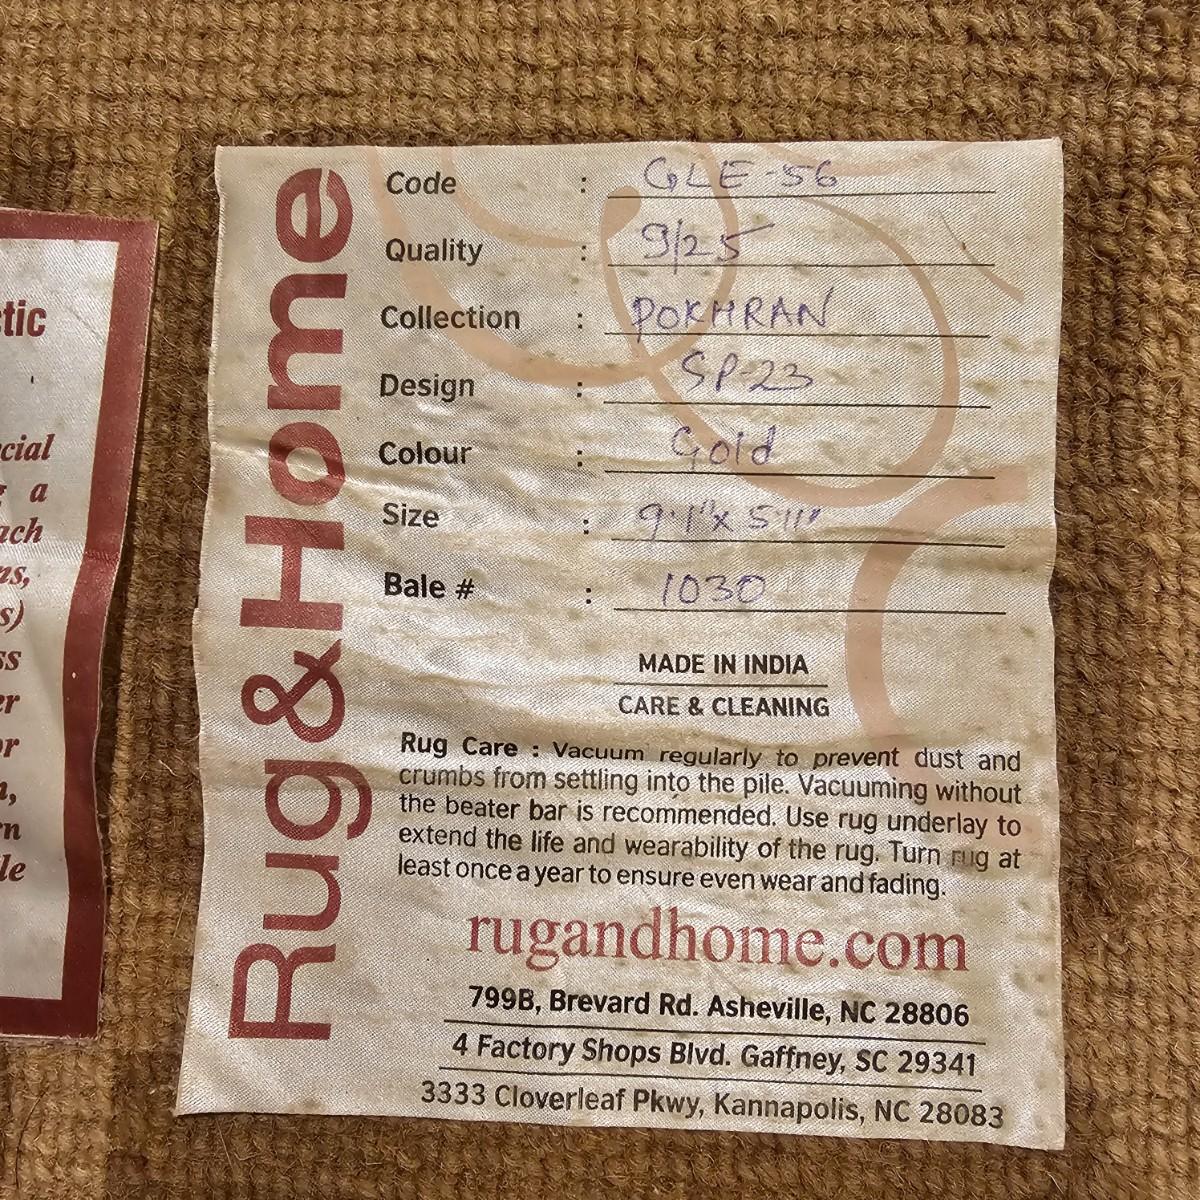 tic
cial
a
ach
ns,
s)
ss
er
or
n,
rn
le
Rug&Home
Code : GLE-56
Quality : 9/25
Collection : POKHRAN
Design : SP-23
Colour : Gold
Size : 9'1"x 5'11"
Bale # : 1030
MADE IN INDIA
CARE & CLEANING
Rug Care : Vacuum regularly to prevent dust and
crumbs from settling into the pile. Vacuuming without
the beater bar is recommended. Use rug underlay to
extend the life and wearability of the rug. Turn rug at
least once a year to ensure even wear and fading.
rugandhome.com
799B, Brevard Rd. Asheville, NC 28806
4 Factory Shops Blvd. Gaffney, SC 29341
3333 Cloverleaf Pkwy, Kannapolis, NC 28083